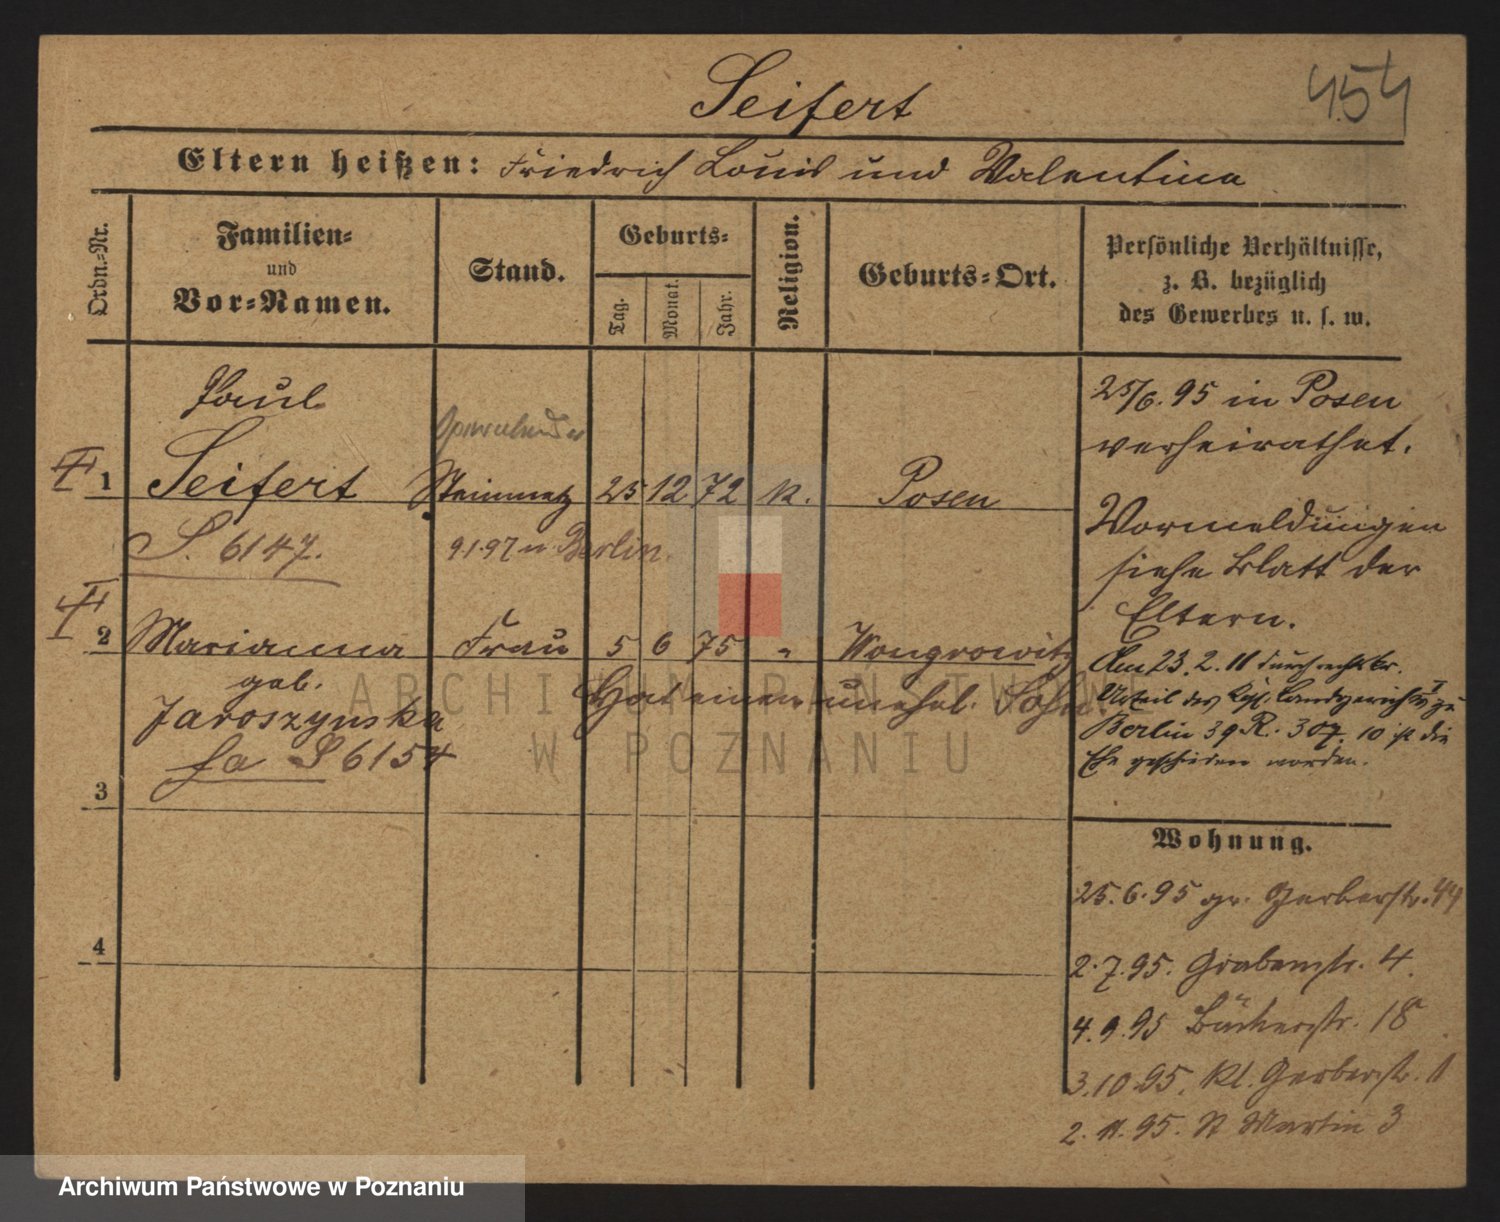 Seifert
454
Eltern heißen: Friedrich Louis und Valentina
Ordn.-Nr.
Familien-
und
Vor-Namen.
Stand.
Geburts-
Tag.
Monat.
Jahr.
Religion.
Geburts-Ort.
Persönliche Verhältnisse,
z. B. bezüglich
des Gewerbes u. s. w.
Paul
1 Seifert Steinmetz 25 12 72 K. Posen
S. 6147. 9.1.97 n Berlin.
2 Marianna Frau 5 6 75 " Wongrowitz
geb. Hat einen unehel. Sohn.
Jaroszynska
fa S 6154
3
4
25/6.95 in Posen
verheirathet.
Vormeldungen
siehe Blatt der
Eltern.
Am 23.2.11 durch rechtskr.
Urteil des Kgl. Landgerichts I zu
Berlin 39 R. 307. 10 ist die
Ehe geschieden worden.
Wohnung.
25.6.95 gr. Gerberstr. 44
2.7.95. Grabenstr. 4.
4.9.95 Bäckerstr. 18
3.10.95. Kl. Gerberstr. 11
2.11.95. St Martin 3
ARCHIWUM PAŃSTWOWE
W POZNANIU
Archiwum Państwowe w Poznaniu